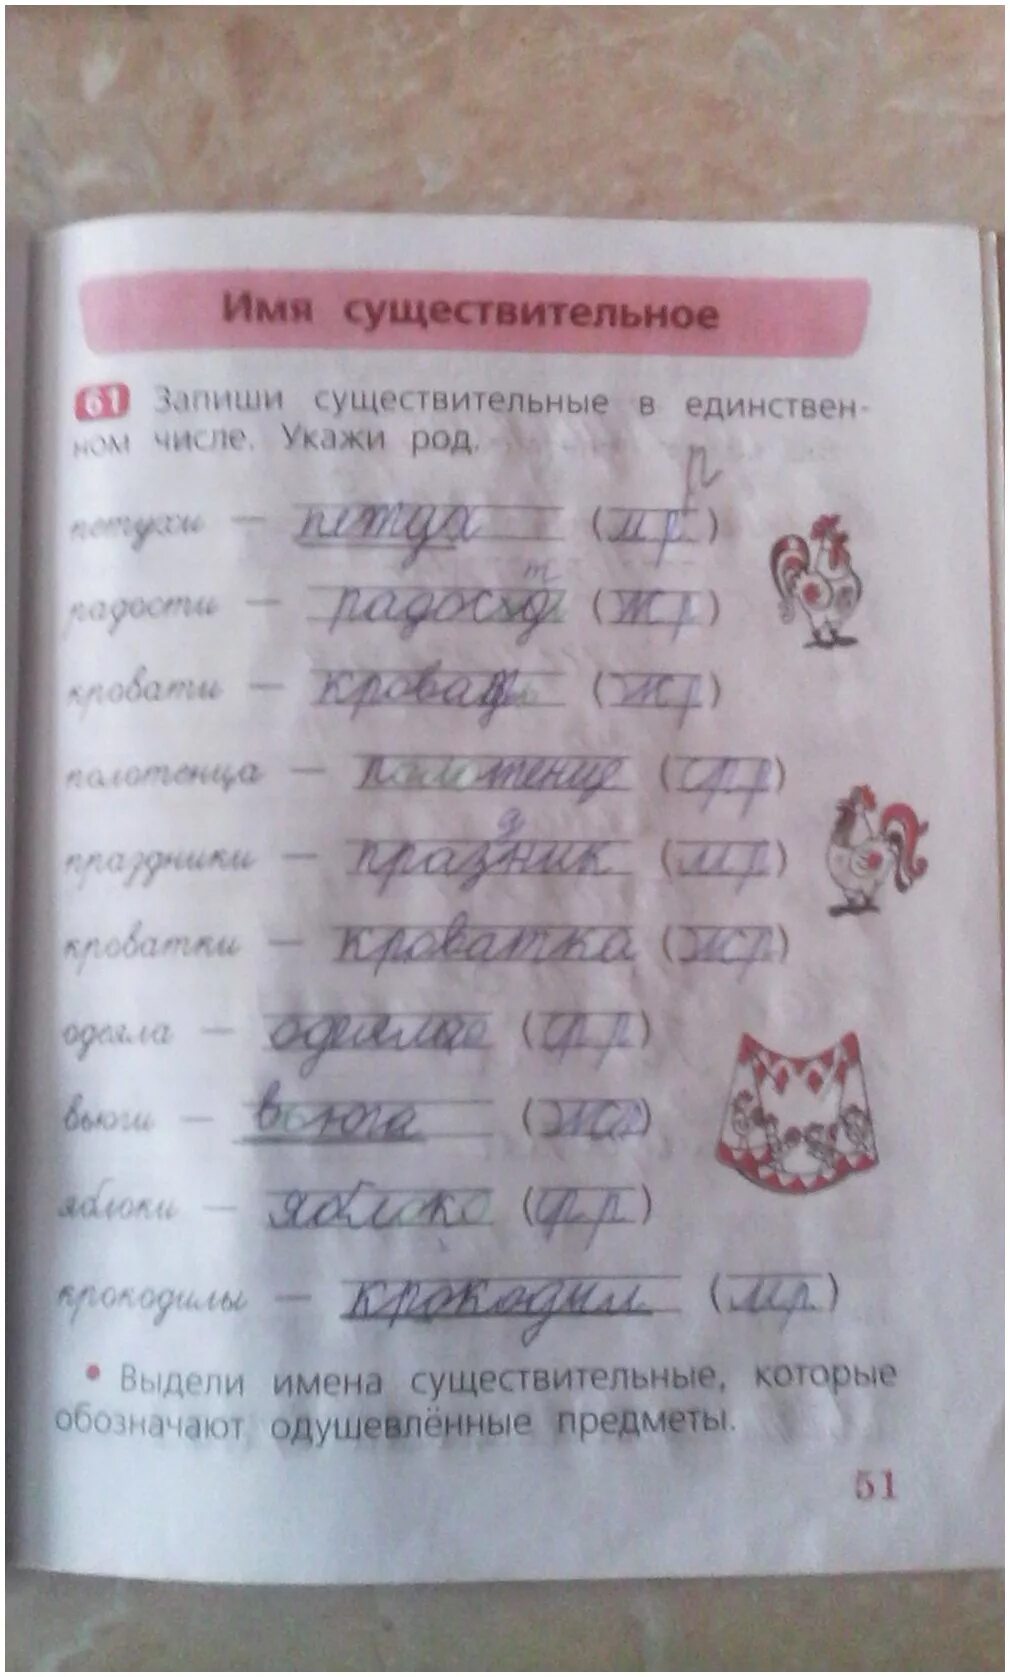 Имя существительное
61 Запиши существительные в единствен-
ном числе. Укажи род.
р
петухи — петух (м р)
т
радости — (ж р)
кровати — (ж р)
полотенца — полотенце (ср р)
д
праздники — празник (м р)
кроватки — кроватка (ж р)
одеяла — (ср р)
вьюги — вьюга (ж р)
яблоки — яблоко (ср р)
крокодилы — крокодил (м р)
• Выдели имена существительные, которые
обозначают одушевлённые предметы.
51